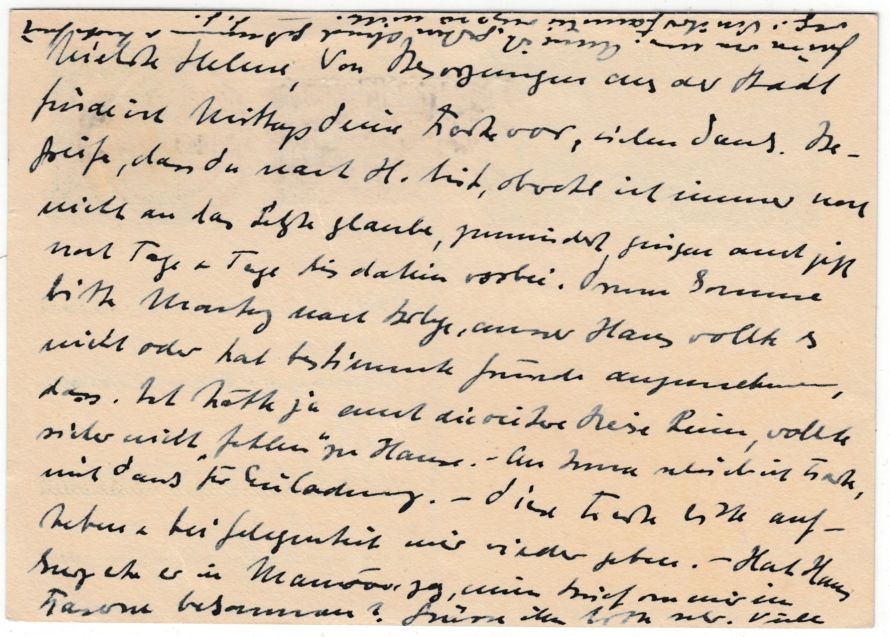 Liebste Helene, Von Besorgungen aus der Stadt
finde ich Mittags Deine Karte vor, vielen Dank. Be-
greife, dass Du nach H. bist, obwohl ich immer noch
nicht an das Letzte glaube, zumindest gingen auch jetzt
noch Tage u. Tage bis dahin vorbei. Drum komme
bitte Montag nach, ausser Hans wollte es
nicht oder hat bestimmte Gründe anzunehmen,
dass. Ich hätte ja auch die weitere Reise, wollte
sicher nicht „fehlen" zu Hause. – An schrieb ich Karte,
mit Dank für Einladung. – Diese Karte bitte auf-
heben u. bei Gelegenheit mir wieder geben. – Hat Hans
kurz ehe er in Manöver zog, einen Brief von mir in
Kaserne bekommen? Grüsse ihn bitte sehr. Viele